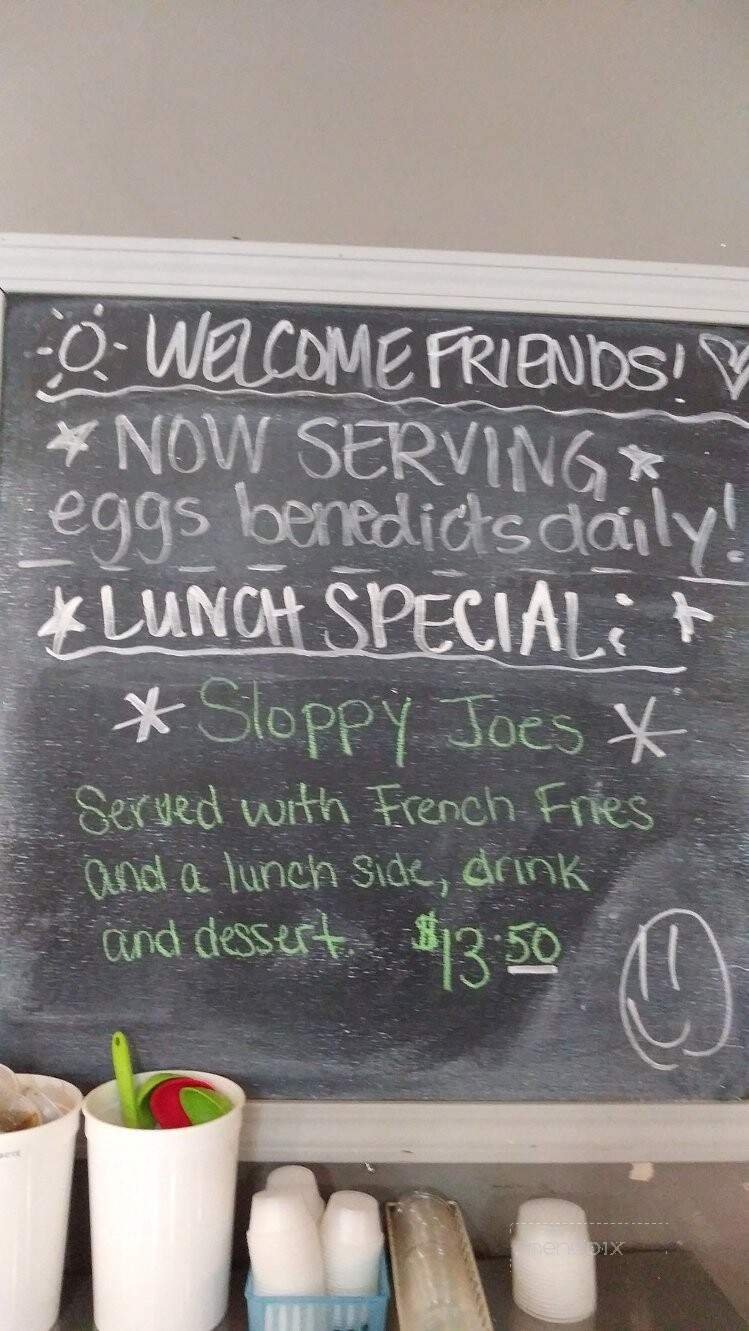 WELCOME FRIENDS!
NOW SERVING
eggs benedicts daily!
LUNCH SPECIAL:
Sloppy Joes
Served with French Fries
and a lunch side, drink
and dessert. $13.50
menupix